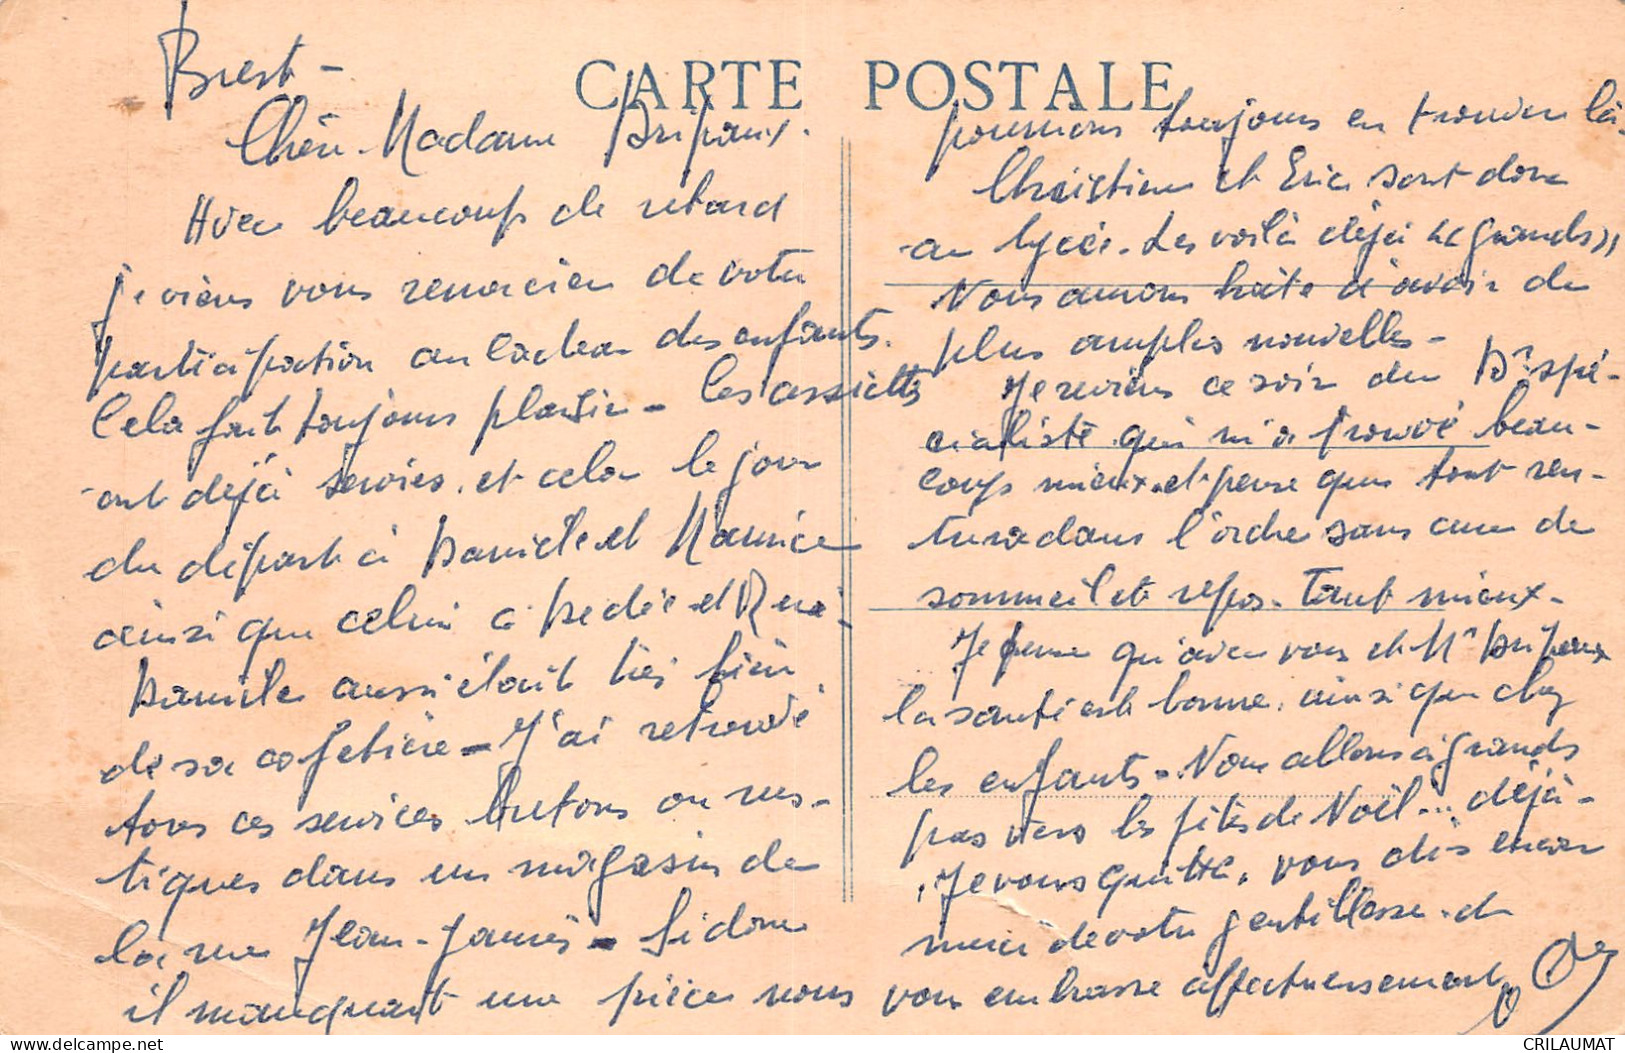 Brest -
CARTE POSTALE
Chère Madame Dripaux.
Avec beaucoup de retard
je viens vous remercier de votre
participation au cadeau des enfants.
Cela fait toujours plaisir - les assiettes
ont déjà servies. et cela le jour
du départ à Danielle et Maurice
ainsi que celui à Dédée et René.
Danielle aussi était très bien
de sa cafetière - J'ai retrouvé
tous ces services bretons ou rus-
tiques dans un magasin de
la rue Jean-Jaurès - Si donc
il manquait une pièce nous
pourrions toujours en trouver là.
Christiane et Eric sont donc
au lycée. Les voilà déjà « grands »
Nous aurons hâte d'avoir de
plus amples nouvelles -
Je reviens ce soir du Dr spé-
cialiste qui m'a trouvé beau-
coup mieux. et pense que tout ren-
trera dans l'ordre sans cure de
sommeil et repos. Tant mieux.
Je pense qu'avec vous et Mr Dripaux
la santé est bonne. ainsi que chez
les enfants. Nous allons à grands
pas vers les fêtes de Noël... déjà -
Je vous quitte, vous dis encore
merci de votre gentillesse. et
vous embrasse affectueusement
CRILAUMAT